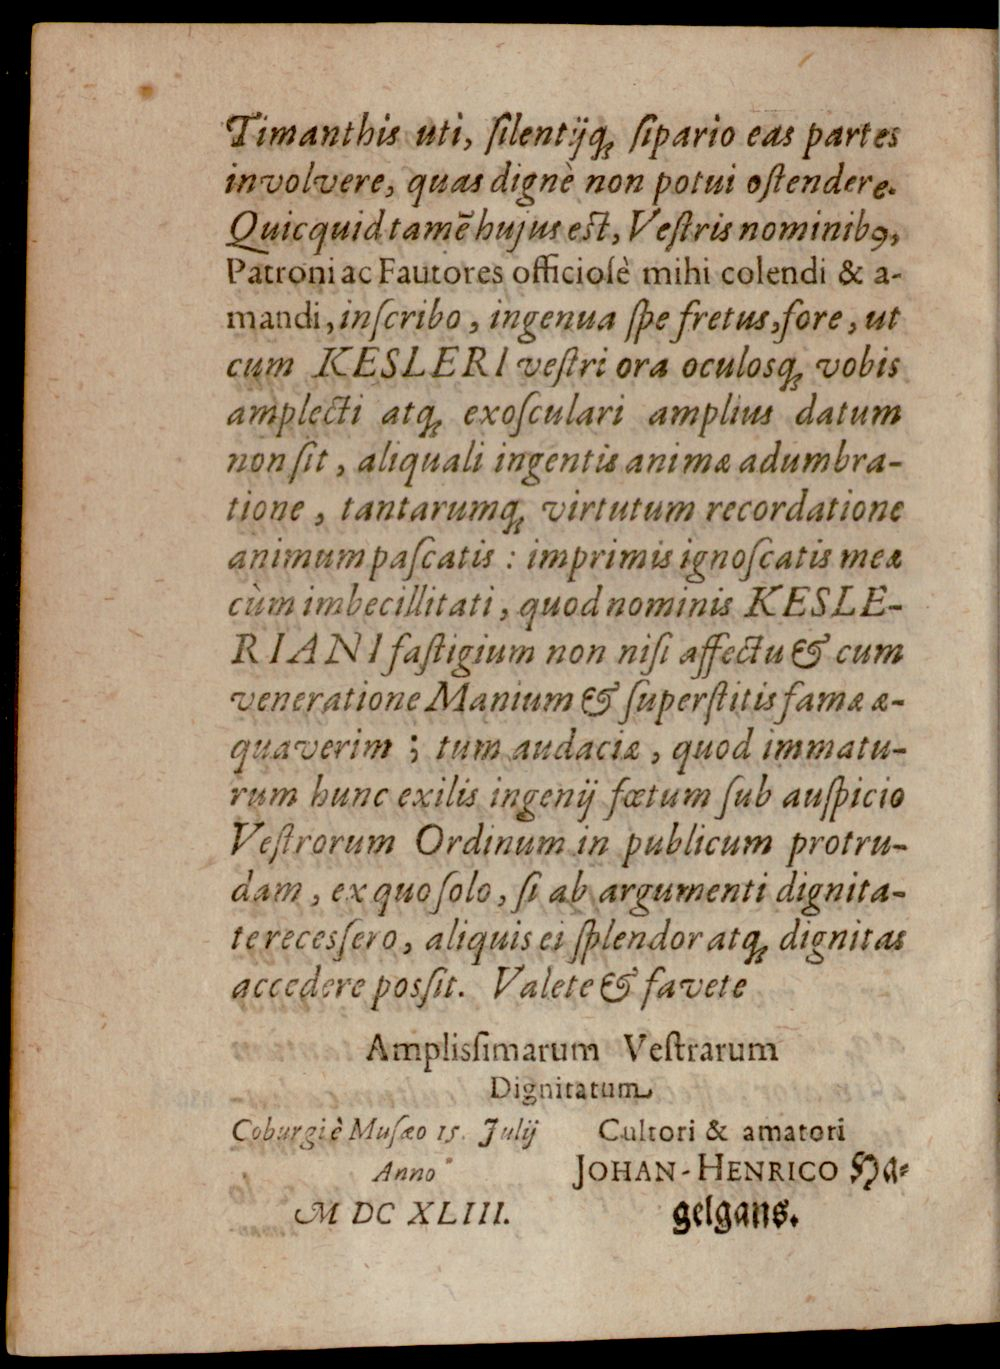 Timanthis uti, ſilentijq́ꝫ ſipario eas partes
involvere, quas dignè non potui oſtendere.
Quicquid tamē hujus eſt, Veſtris nominibꝰ,
Patroni ac Fautores officioſè mihi colendi & a-
mandi, inſcribo, ingenua ſpe fretus, fore, ut
cum KESLERI veſtri ora oculosq́ꝫ vobis
amplecti atq́ꝫ exoſculari amplius datum
non ſit, aliquali ingentis animæ adumbra-
tione, tantarumq́ꝫ virtutum recordatione
animum paſcatis: imprimis ignoſcatis meæ
cùm imbecillitati, quod nominis KESLE-
RIANI faſtigium non niſi affectu & cum
veneratione Manium & ſuperſtitis famæ æ-
quaverim; tum audaciæ, quod immatu-
rum hunc exilis ingenij fœtum ſub auſpicio
Veſtrorum Ordinum in publicum protru-
dam, ex quo ſolo, ſi ab argumenti dignita-
te recesſero, aliquis ei ſplendor atq́ꝫ dignitas
accedere posſit. Valete & favete
Amplisſimarum Veſtrarum
Dignitatum
Coburgi è Muſæo 15. Julij
Anno
M DC XLIII.
Cultori & amatori
JOHAN-HENRICO Ha-
gelgans.